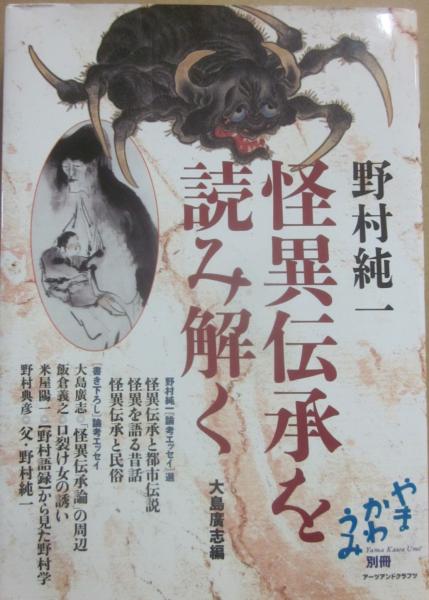 野村純一
怪異伝承を
読み解く
大島廣志編
野村純一「論考エッセイ」選
怪異伝承と都市伝説
怪異を語る昔話
怪異伝承と民俗
[書き下ろし]論考エッセイ
大島廣志◎「怪異伝承論」の周辺
飯倉義之◎口裂け女の誘い
米屋陽一◎【野村語録】から見た野村学
野村典彦◎父・野村純一
やま
かわ
うみ
Yama Kawa Umi
別冊
アーツアンドクラフツ